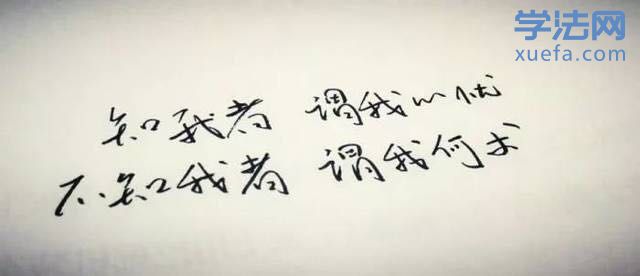 学法网
xuefa.com
知我者 谓我心忧
不知我者 谓我何求